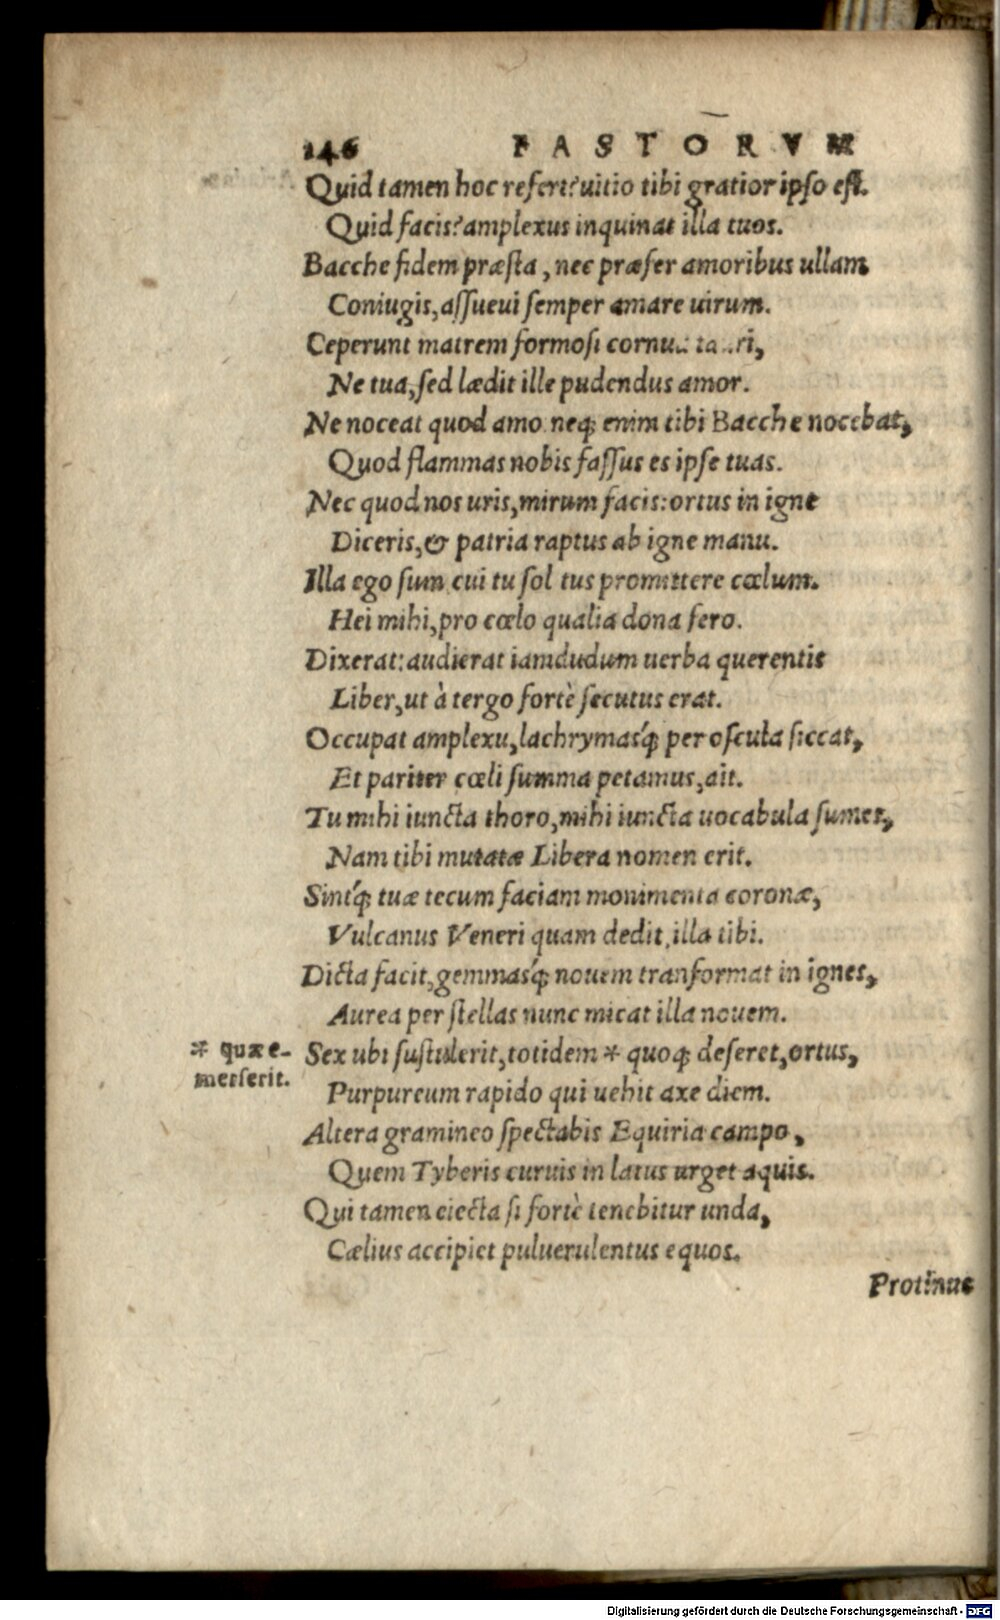 146 FASTORVM
Quid tamen hoc refert? uitio tibi gratior ipso est.
Quid facis? amplexus inquinat illa tuos.
Bacche fidem præsta, nec præfer amoribus ullam
Coniugis, assueui semper amare uirum.
Ceperunt matrem formosi cornua tauri,
Ne tua, sed lædit ille pudendus amor.
Ne noceat quod amo neq; enim tibi Bacche nocebat,
Quod flammas nobis fassus es ipse tuas.
Nec quod nos uris, mirum facis: ortus in igne
Diceris, & patria raptus ab igne manu.
Illa ego sum cui tu sol tus promittere cœlum.
Hei mihi, pro cœlo qualia dona fero.
Dixerat: audierat iamdudum uerba querentis
Liber, ut à tergo fortè secutus erat.
Occupat amplexu, lachrymasq́; per oscula siccat,
Et pariter cœli summa petamus, ait.
Tu mihi iuncta thoro, mihi iuncta uocabula sumes,
Nam tibi mutatæ Libera nomen erit.
Sintq́; tuæ tecum faciam monimenta coronæ,
Vulcanus Veneri quam dedit, illa tibi.
Dicta facit, gemmasq́; nouem tranformat in ignes,
Aurea per stellas nunc micat illa nouem.
* quæ e-
merserit.
Sex ubi sustulerit, totidem * quoq; deseret, ortus,
Purpureum rapido qui uehit axe diem.
Altera gramineo spectabis Equiria campo,
Quem Tyberis curuis in latus urget aquis.
Qui tamen eiecta si fortè tenebitur unda,
Cælius accipiet puluerulentus equos.
Protinus
Digitalisierung gefördert durch die Deutsche Forschungsgemeinschaft - DFG